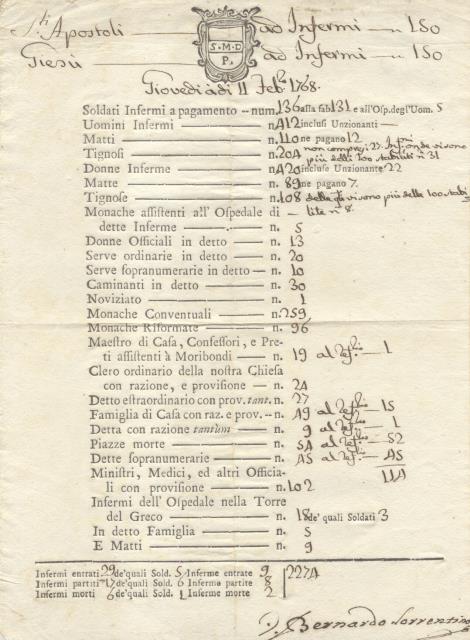 Sti Apostoli ad Infermi — n 150
S. M. D
P.
Giesù ad Infermi — n 150
Giovedi adi 11 Feb.º 1768.
Soldati Infermi a pagamento — num. 136 alla fab 131 e all'Osp. degl'Uom. 5
Uomini Infermi — n. 412 inclusi Unzionanti —
Matti — n. 110 ne pagano 12
Tignosi — n. 204 non compresi 27 Inf.ni onde visono più delli 100 stabiliti n 31
Donne Inferme — n. 420 incluse Unzionante 22
Matte — n. 89 ne pagano 7.
Tignose — n. 108 delle qli visono più delle 100 stabi
Monache assistenti all' Ospedale di — lite n 8.
dette Inferme — n. 5
Donne Officiali in detto — n. 13
Serve ordinarie in detto — n. 20
Serve sopranumerarie in detto — n. 10
Caminanti in detto — n. 30
Noviziato — n. 1
Monache Conventuali — n. 259
Monache Riformate — n. 96
Maestro di Casa, Confessori, e Pre-
ti assistenti à Moribondi — n. 19 — 1
Clero ordinario della nostra Chiesa
con razione, e provisione — n. 24
Detto estraordinario con prov. tant. n. 27
Famiglia di Casa con raz. e prov. — n. 49 — 15
Detta con razione tantùm — n. 9 — 1
Piazze morte — n. 54 — 52
Dette sopranumerarie — n. 45 — 45
114
Ministri, Medici, ed altri Officia-
li con provisione — n. 102
Infermi dell' Ospedale nella Torre
del Greco — n. 18 de' quali Soldati 3
In detto Famiglia — n. 5
E Matti — n. 9
Infermi entrati 29 de'quali Sold. 5 Inferme entrate 9 2274
Infermi partiti de'quali Sold. 6 Inferme partite 8
Infermi morti 6 de'quali Sold. 1 Inferme morte 2
Bernardo Sorrentino